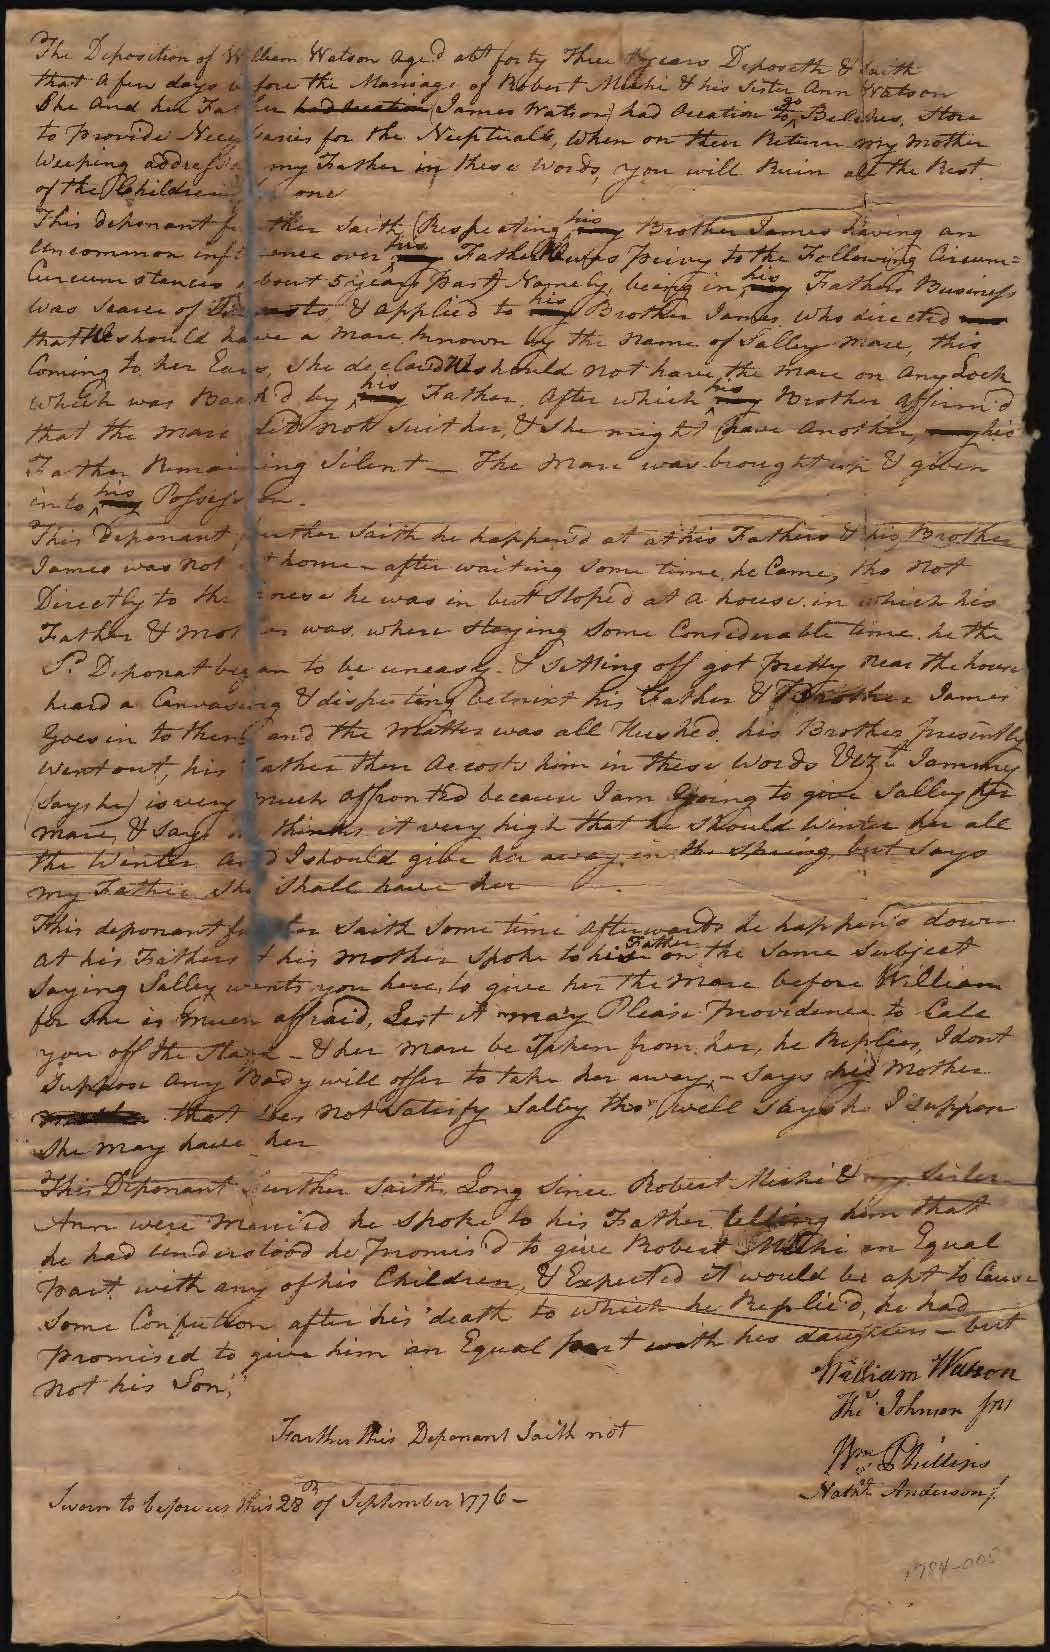 The Deposition of William Watson aged abt forty Three years Deposeth & Saith
that a few days before the Marriage of Robert Michi & his Sister Ann Watson
She and her Father had occation (James Watson) had Occation to go Belches Store
to provide Necessaries for the Neuptuals, When on their Return my Mother
Weeping addressd my Father in these Words, you will Ruin all the Rest
of the Children one
This deponant further Saith (Respecting his my Brother James having an
uncommon influence over his my Father) He was privy to the Following Circum=
Circumstances about 5 years past Namely, being in his my Fathers Business
was Scarce of & applied to his my Brother James who directed
that He should have a Mare known by the name of Salley Mare, this
Coming to her Ears, She declard He should not have the Mare on any Lock
which was Back'd by his my Father, After which his my Brother affirm'd
that the Mare Did not Suit her, & she might have Another, my his
Father Remaining Silent — The Mare was brought up & given
into his my Possession.
This Deponant further Saith he happen'd at at his Fathers & his Brother
James was not at home — after waiting Some time, he Came, tho not
Directly to the House he was in but Stoped at a house in which his
Father & Mother was, where staying Some Considerable time he the
Sd. Deponat began to be uneasy & Setting off got pretty near the house
heard a Canvasing & disputing betwixt his Father & Brother James
Goes in to them and the Matter was all Hushed his Brother presently
went out, his Father then Accosts him in these Words Vizt. Jammey
(Says he) is very much affronted because I am Going to give Salley her
mare, & Says he thinks it very high that he should Winter her all
the Winter And I should give her away in the Spring, but Says
my Father She Shall have her
This deponant further Saith Some time afterwards he happen'd down
at his Fathers & his Mother Spoke to his Father on the Same Subject
Saying Salley wants you here, to give her the Mare before William
for She is Much affraid, Lest it may Please Providence to Cale
you off the Stage — & her Mare be Taken from her, he Replies, I dont
Suppose Any Body will offer to take her away, — Says his Mother
that does not Satisfy Salley tho', well Says he I Suppose
She may have her
This Deponant further Saith, Long Since Robert Michi & my Sister
Ann were Married he Spoke to his Father telling him that
he had understood he Promis'd to give Robert Michi an Equal
Part with any of his Children, & Expected it would be apt to Cause
Some Confution after his death to which he Replie'd, he had
promised to give him an Equal part with his daughters — but
not his Son;
Farther this Deponant Saith not
William Watson
Tho Johnson Jnr
Wm Phillips
Nathl. Anderson
Sworn to before us this 28th of September 1776 —
1784-005